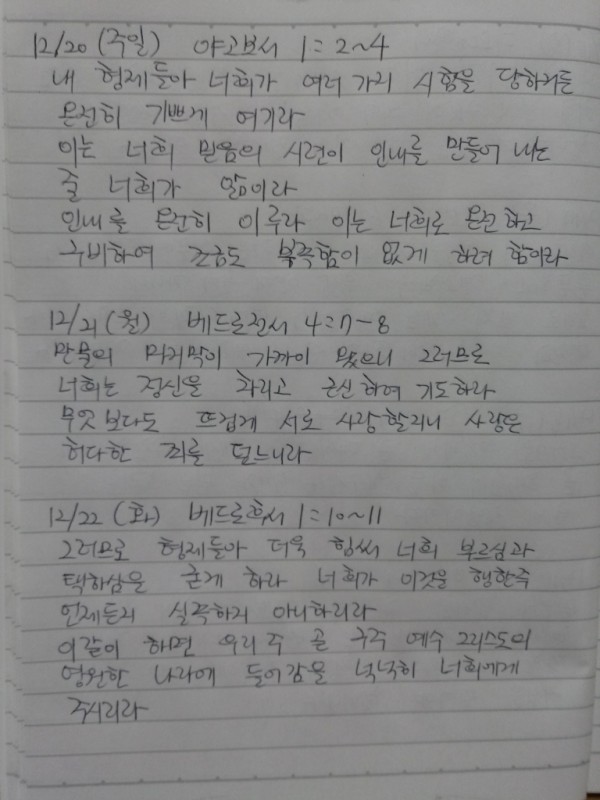 12/20 (주일) 야고보서 1:2~4
내 형제들아 너희가 여러가지 시험을 당하거든
온전히 기쁘게 여기라
이는 너희 믿음의 시련이 인내를 만들어 내는
줄 너희가 앎이라
인내를 온전히 이루라 이는 너희로 온전하고
구비하여 조금도 부족함이 없게 하려 함이라
12/21 (월) 베드로전서 4:7~8
만물의 마지막이 가까이 왔으니 그러므로
너희는 정신을 차리고 근신하여 기도하라
무엇보다도 뜨겁게 서로 사랑할지니 사랑은
허다한 죄를 덮느니라
12/22 (화) 베드로후서 1:10~11
그러므로 형제들아 더욱 힘써 너희 부르심과
택하심을 굳게 하라 너희가 이것을 행한즉
언제든지 실족하지 아니하리라
이같이 하면 우리 주 곧 구주 예수 그리스도의
영원한 나라에 들어감을 넉넉히 너희에게
주시리라